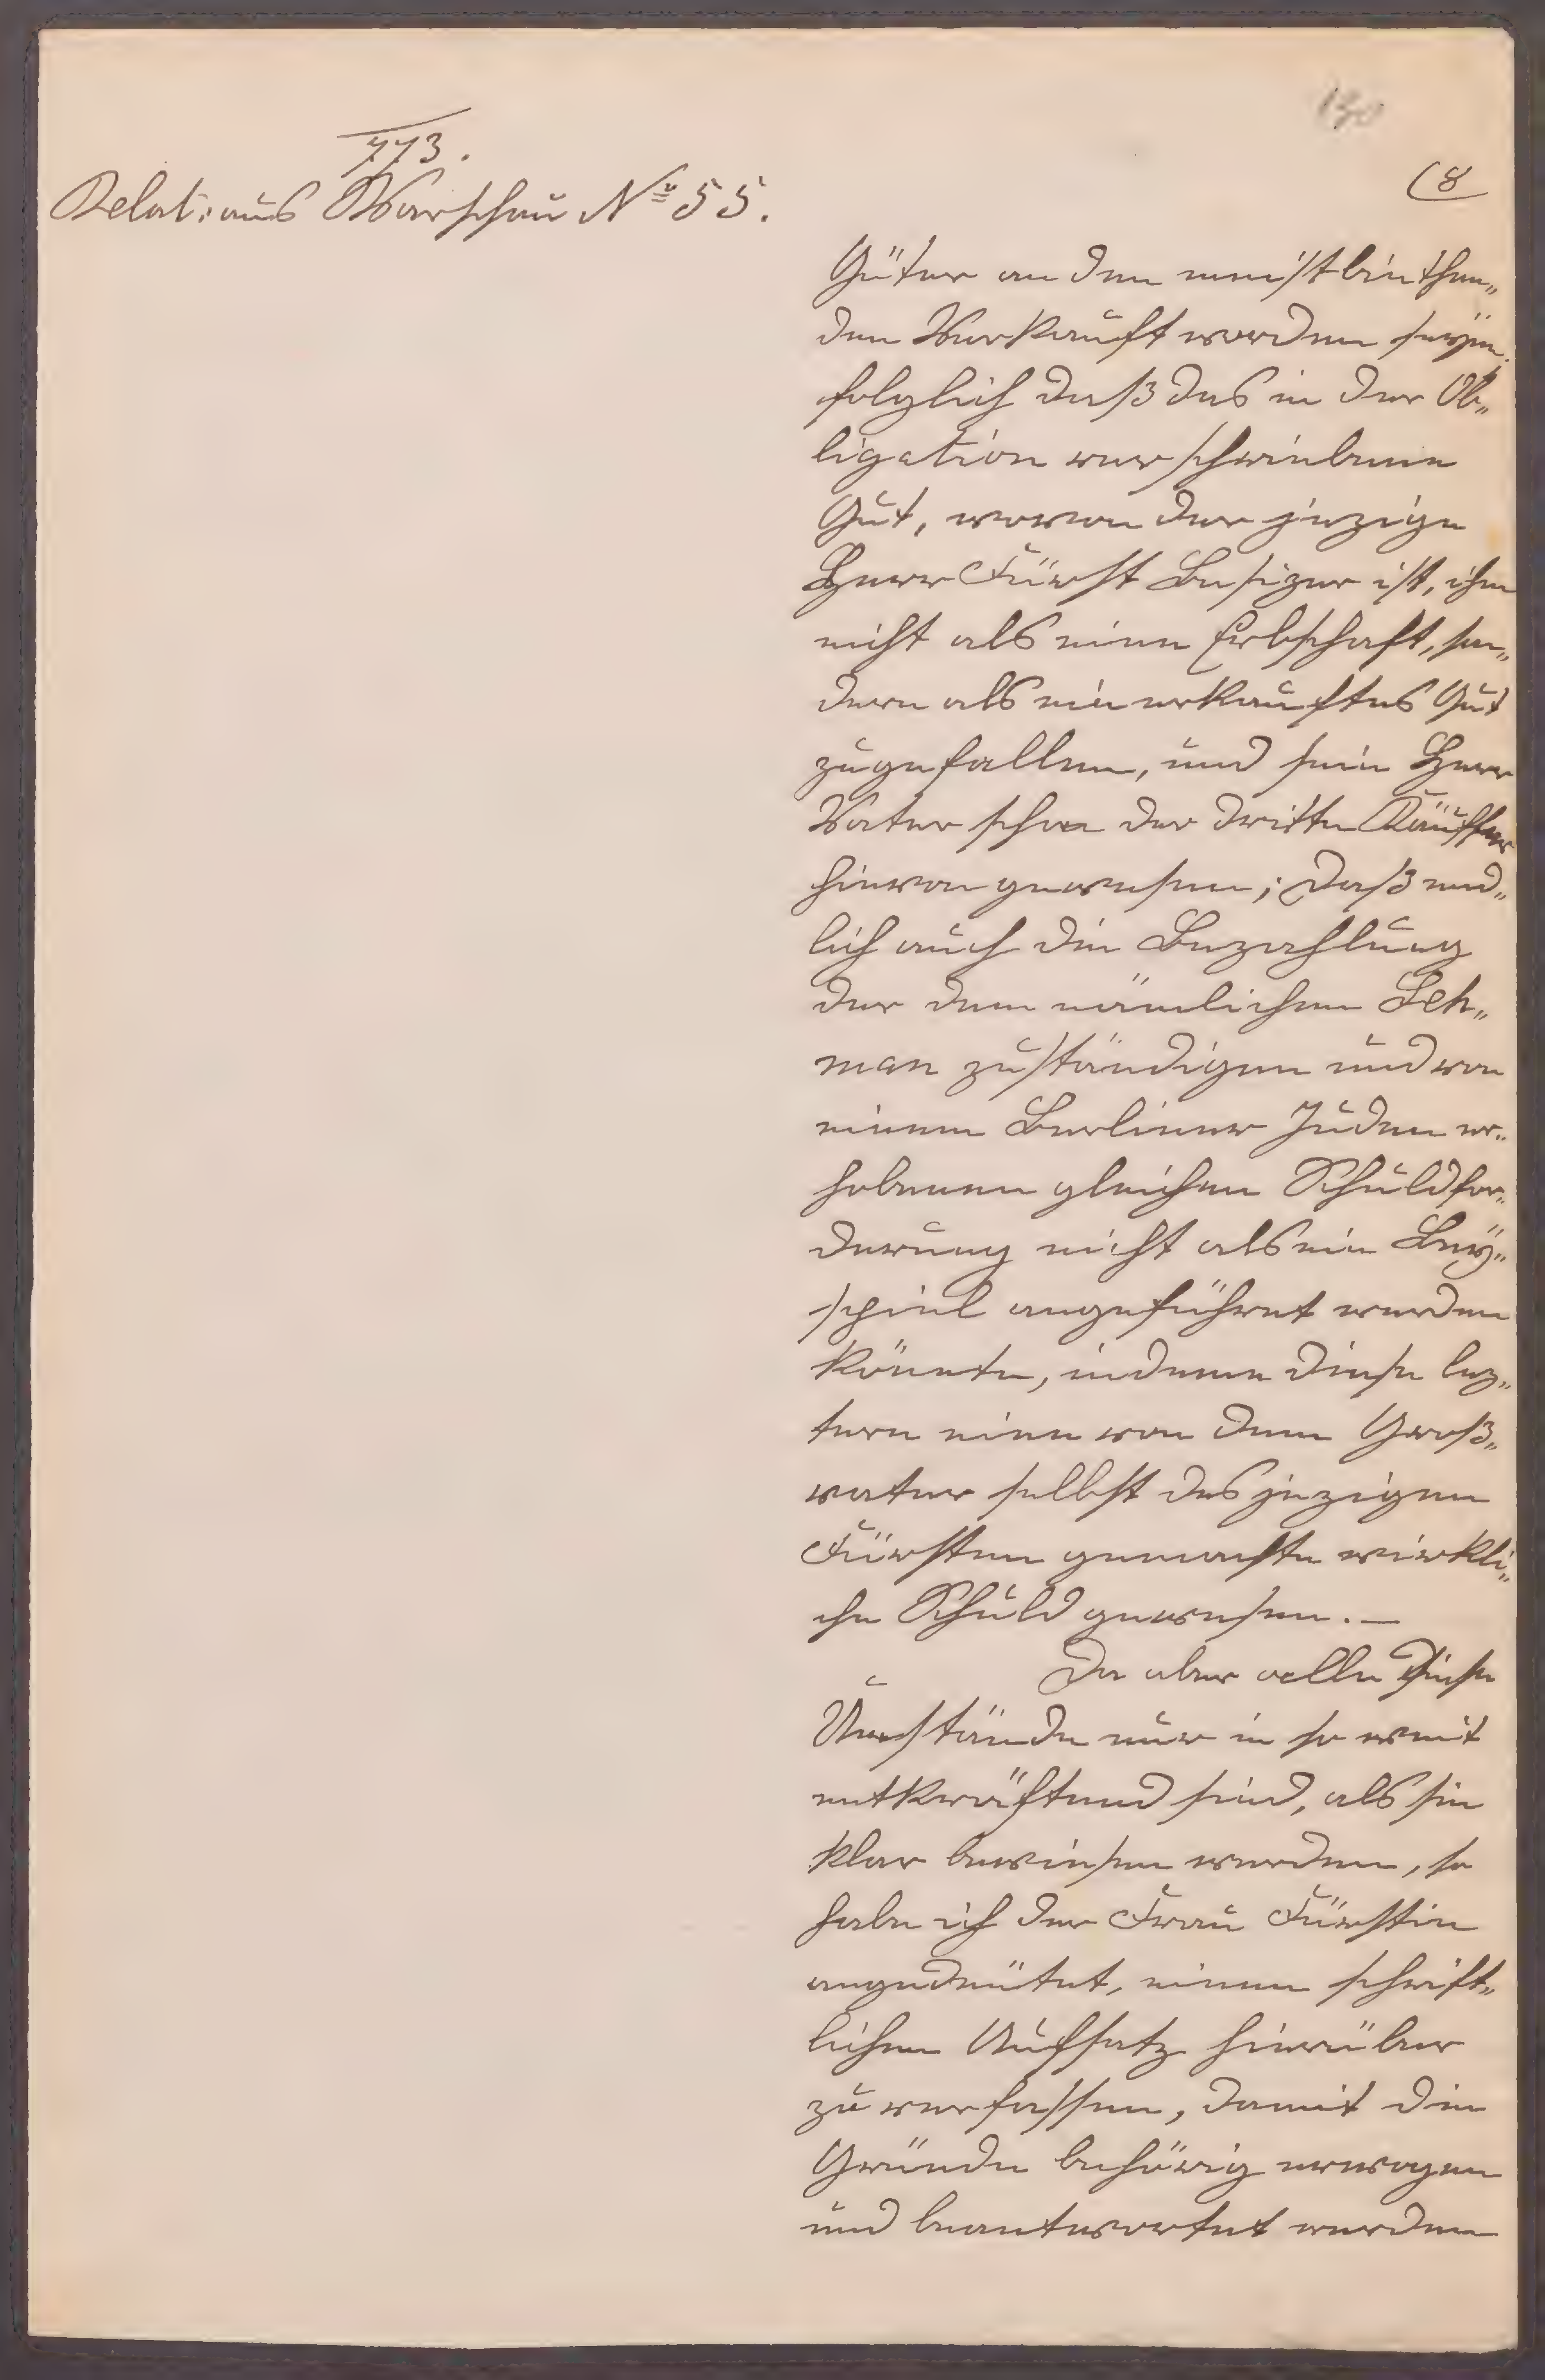 130
773.
Relat: aus Warschau Nº 55.
(8
Güter an den meistbiethen„
den Verkauft worden seÿen.
folglich daß das in der Ob„
ligation verschriebene
Gut, wovon der jezige
Herr Fürst Besizer ist, ihm
nicht als eine Erbschaft, son„
dern als ein erkauftes Gut
zugefallen, und sein Herr
Vater schon der dritte Käuffer
hievon gewesen; daß end„
lich auch die Bezahlung
der dem nämlichen Leh„
man zuständigen und von
einem Berliner Juden er„
hobenen gleichen Schuldfor„
derung nicht als ein Beÿ„
spiel angeführet werden
könnte, indeme diese lez„
tere eine von dem Groß„
vater selbst des jezigen
Fürsten gemachte wirkli„
che Schuld gewesen. —
Da aber alle diese
Umstände nur in so weit
entkräftend sind, als sie
klar bewiesen werden, so
habe ich der Frau Fürstin
angedeütet, einen schrift„
lichen Aufsatz hierüber
zu verfassen, damit die
Gründe behörig erwogen
und beantwortet werden